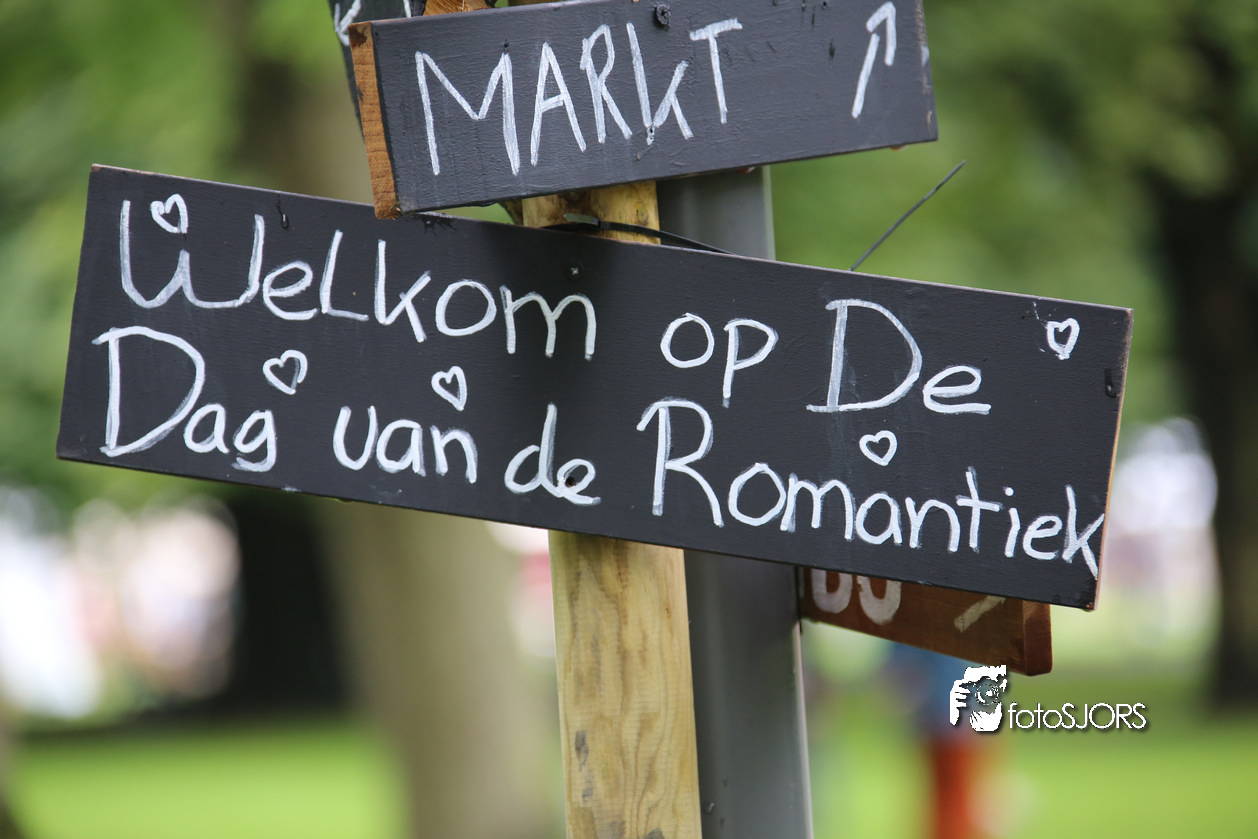 MARKT ↗
Welkom op De
Dag van de Romantiek
fotoSJORS